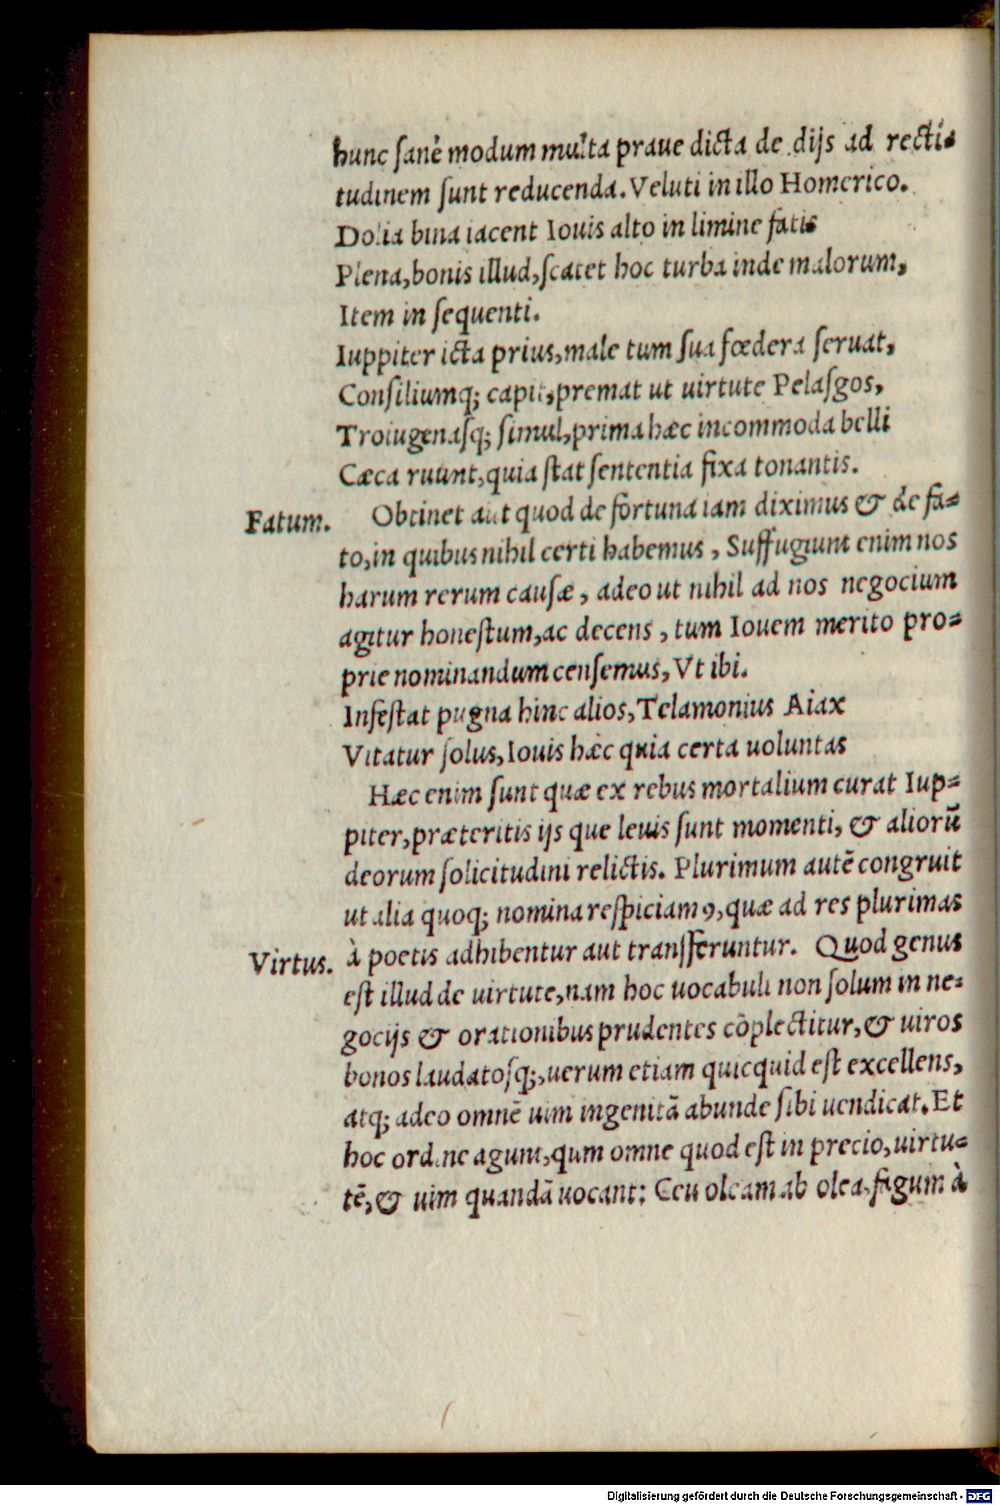 hunc ſanè modum multa praue dicta de dijs ad recti⸗
tudinem ſunt reducenda. Veluti in illo Homerico.
Dolia bina iacent Iouis alto in limine fatis
Plena, bonis illud, ſcatet hoc turba inde malorum,
Item in ſequenti.
Iuppiter icta prius, male tum ſua fœdera ſeruat,
Conſiliumq; capit, premat ut uirtute Pelaſgos,
Troiugenaſq; ſimul, prima hæc incommoda belli
Cæca ruunt, quia ſtat ſententia fixa tonantis.
Fatum. Obtinet aut quod de fortuna iam diximus & de fa⸗
to, in quibus nihil certi habemus, Suffugiunt enim nos
harum rerum cauſæ, adeo ut nihil ad nos negocium
agitur honeſtum, ac decens, tum Iouem merito pro⸗
prie nominandum cenſemus, Vt ibi.
Infeſtat pugna hinc alios, Telamonius Aiax
Vitatur ſolus, Iouis hæc quia certa uoluntas
Hæc enim ſunt quæ ex rebus mortalium curat Iup⸗
piter, præteritis ijs que leuis ſunt momenti, & aliorũ
deorum ſolicitudini relictis. Plurimum autẽ congruit
ut alia quoq; nomina reſpiciamꝰ, quæ ad res plurimas
Virtus. à poetis adhibentur aut tranſferuntur. Quod genus
eſt illud de uirtute, nam hoc uocabuli non ſolum in ne⸗
gocijs & orationibus prudentes cõplectitur, & uiros
bonos laudatoſq;, uerum etiam quicquid eſt excellens,
atq; adeo omnẽ uim ingenitã abunde ſibi uendicat. Et
hoc ordine agunt, qum omne quod eſt in precio, uirtu⸗
tẽ, & uim quandã uocant: Ceu oleam ab olea, fagum à
Digitalisierung gefördert durch die Deutsche Forschungsgemeinschaft - DFG